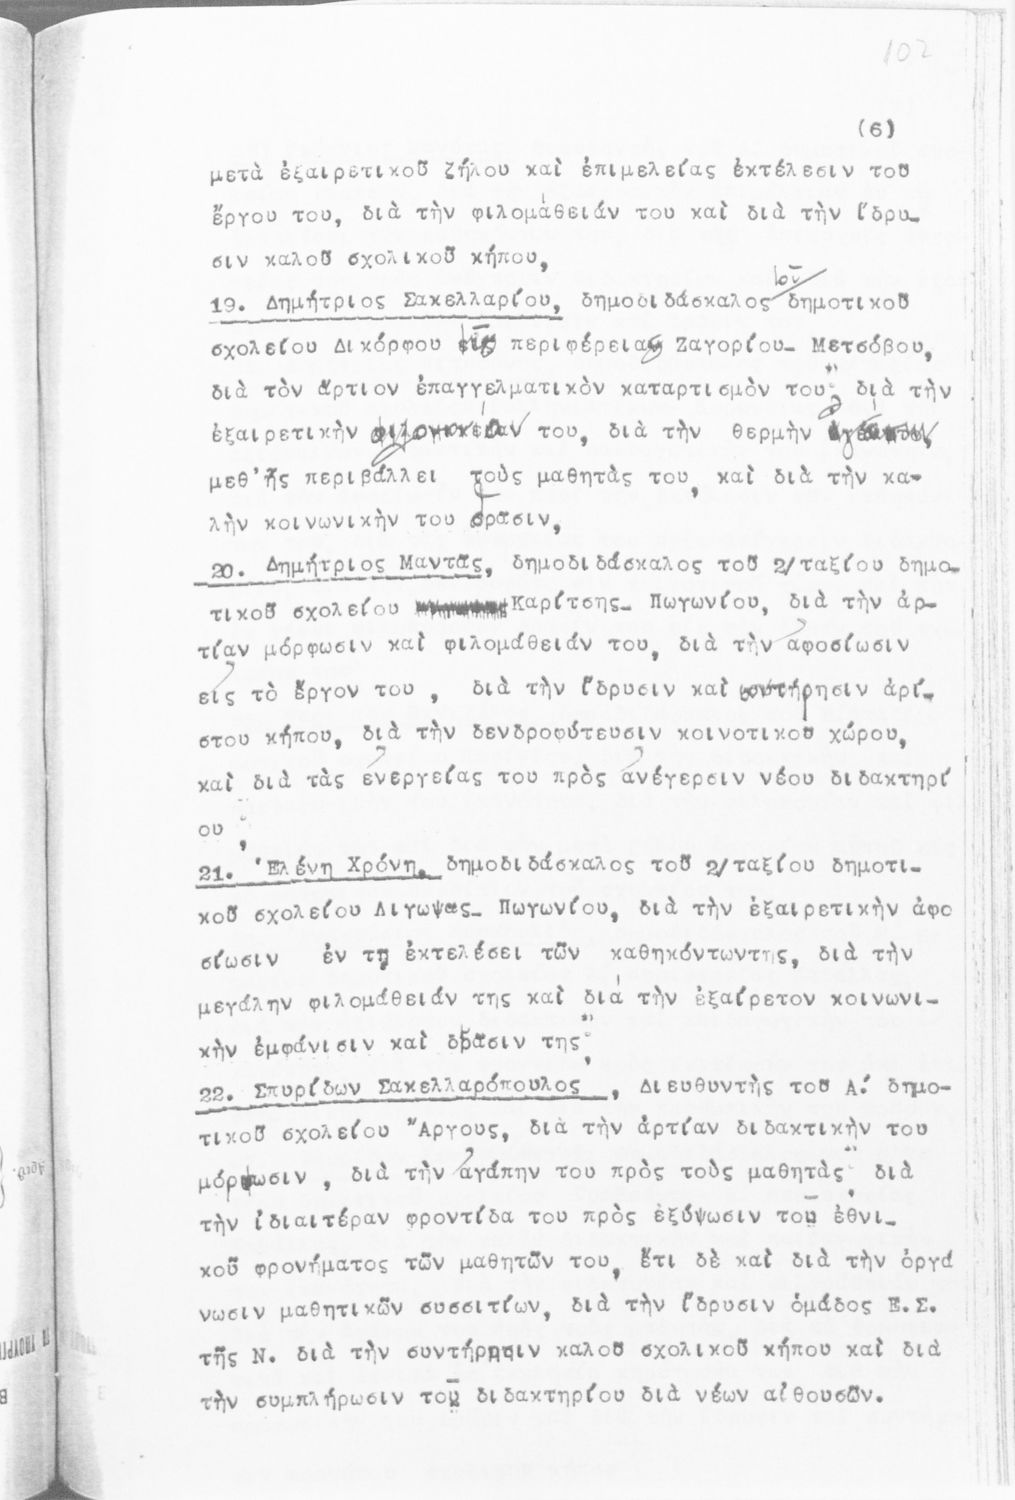 102
(6)
μετὰ ἐξαιρετικοῦ ζήλου καὶ ἐπιμελείας ἐκτέλεσιν τοῦ
ἔργου του, διὰ τὴν φιλομάθειάν του καὶ διὰ τὴν ἵδρυ_
σιν καλοῦ σχολικοῦ κήπου,
19. Δημήτριος Σακελλαρίου, δημοδιδάσκαλος δημοτικοῦ
σχολείου Δικόρφου εἰς περιφέρειας Ζαγορίου_ Μετσόβου,
διὰ τὸν ἄρτιον ἐπαγγελματικὸν καταρτισμὸν του, διὰ τὴν
ἐξαιρετικὴν του, διὰ τὴν θερμὴν
μεθ' ἧς περιβάλλει τοὺς μαθητὰς του, καὶ διὰ τὴν κα-
λὴν κοινωνικὴν του δρᾶσιν,
20. Δημήτριος Μαντᾶς, δημοδιδάσκαλος τοῦ 2/ταξίου δημο_
τικοῦ σχολείου Καρίτσης_ Πωγωνίου, διὰ τὴν ἀρ-
τίαν μόρφωσιν καὶ φιλομάθειάν του, διὰ τὴν ἀφοσίωσιν
εἰς τὸ ἔργον του , διὰ τὴν ἵδρυσιν καὶ συντήρησιν ἀρί_
στου κήπου, διὰ τὴν δενδροφύτευσιν κοινοτικοῦ χώρου,
καὶ διὰ τὰς ἐνεργείας του πρὸς ἀνέγερσιν νέου διδακτηρί
ου ,
21. Ἑλένη Χρόνη, δημοδιδάσκαλος τοῦ 2/ταξίου δημοτι_
κοῦ σχολείου Λιγωψᾶς_ Πωγωνίου, διὰ τὴν ἐξαιρετικὴν ἀφο
σίωσιν ἐν τῃ ἐκτελέσει τῶν καθηκόντωντης, διὰ τὴν
μεγάλην φιλομάθειάν της καὶ διά τὴν ἐξαίρετον κοινωνι_
κὴν ἐμφάνισιν καὶ δρᾶσιν της,
22. Σπυρίδων Σακελλαρόπουλος , Διευθυντὴς τοῦ Α.' δημο-
τικοῦ σχολείου Ἄργους, διὰ τὴν ἀρτίαν διδακτικὴν του
μόρφωσιν , διὰ τὴν ἀγάπην του πρὸς τοὺς μαθητὰς, διὰ
τὴν ἰδιαιτέραν φροντίδα του πρὸς ἐξύψωσιν τοῦ ἐθνι_
κοῦ φρονήματος τῶν μαθητῶν του, ἔτι δὲ καὶ διὰ τὴν ὀργά
νωσιν μαθητικῶν συσσιτίων, διὰ τὴν ἵδρυσιν ὁμάδος Ε.Σ.
τῆς Ν. διὰ τὴν συντήρησιν καλοῦ σχολικοῦ κήπου καὶ διὰ
τὴν συμπλήρωσιν τοῦ διδακτηρίου διὰ νέων αἰθουσῶν.